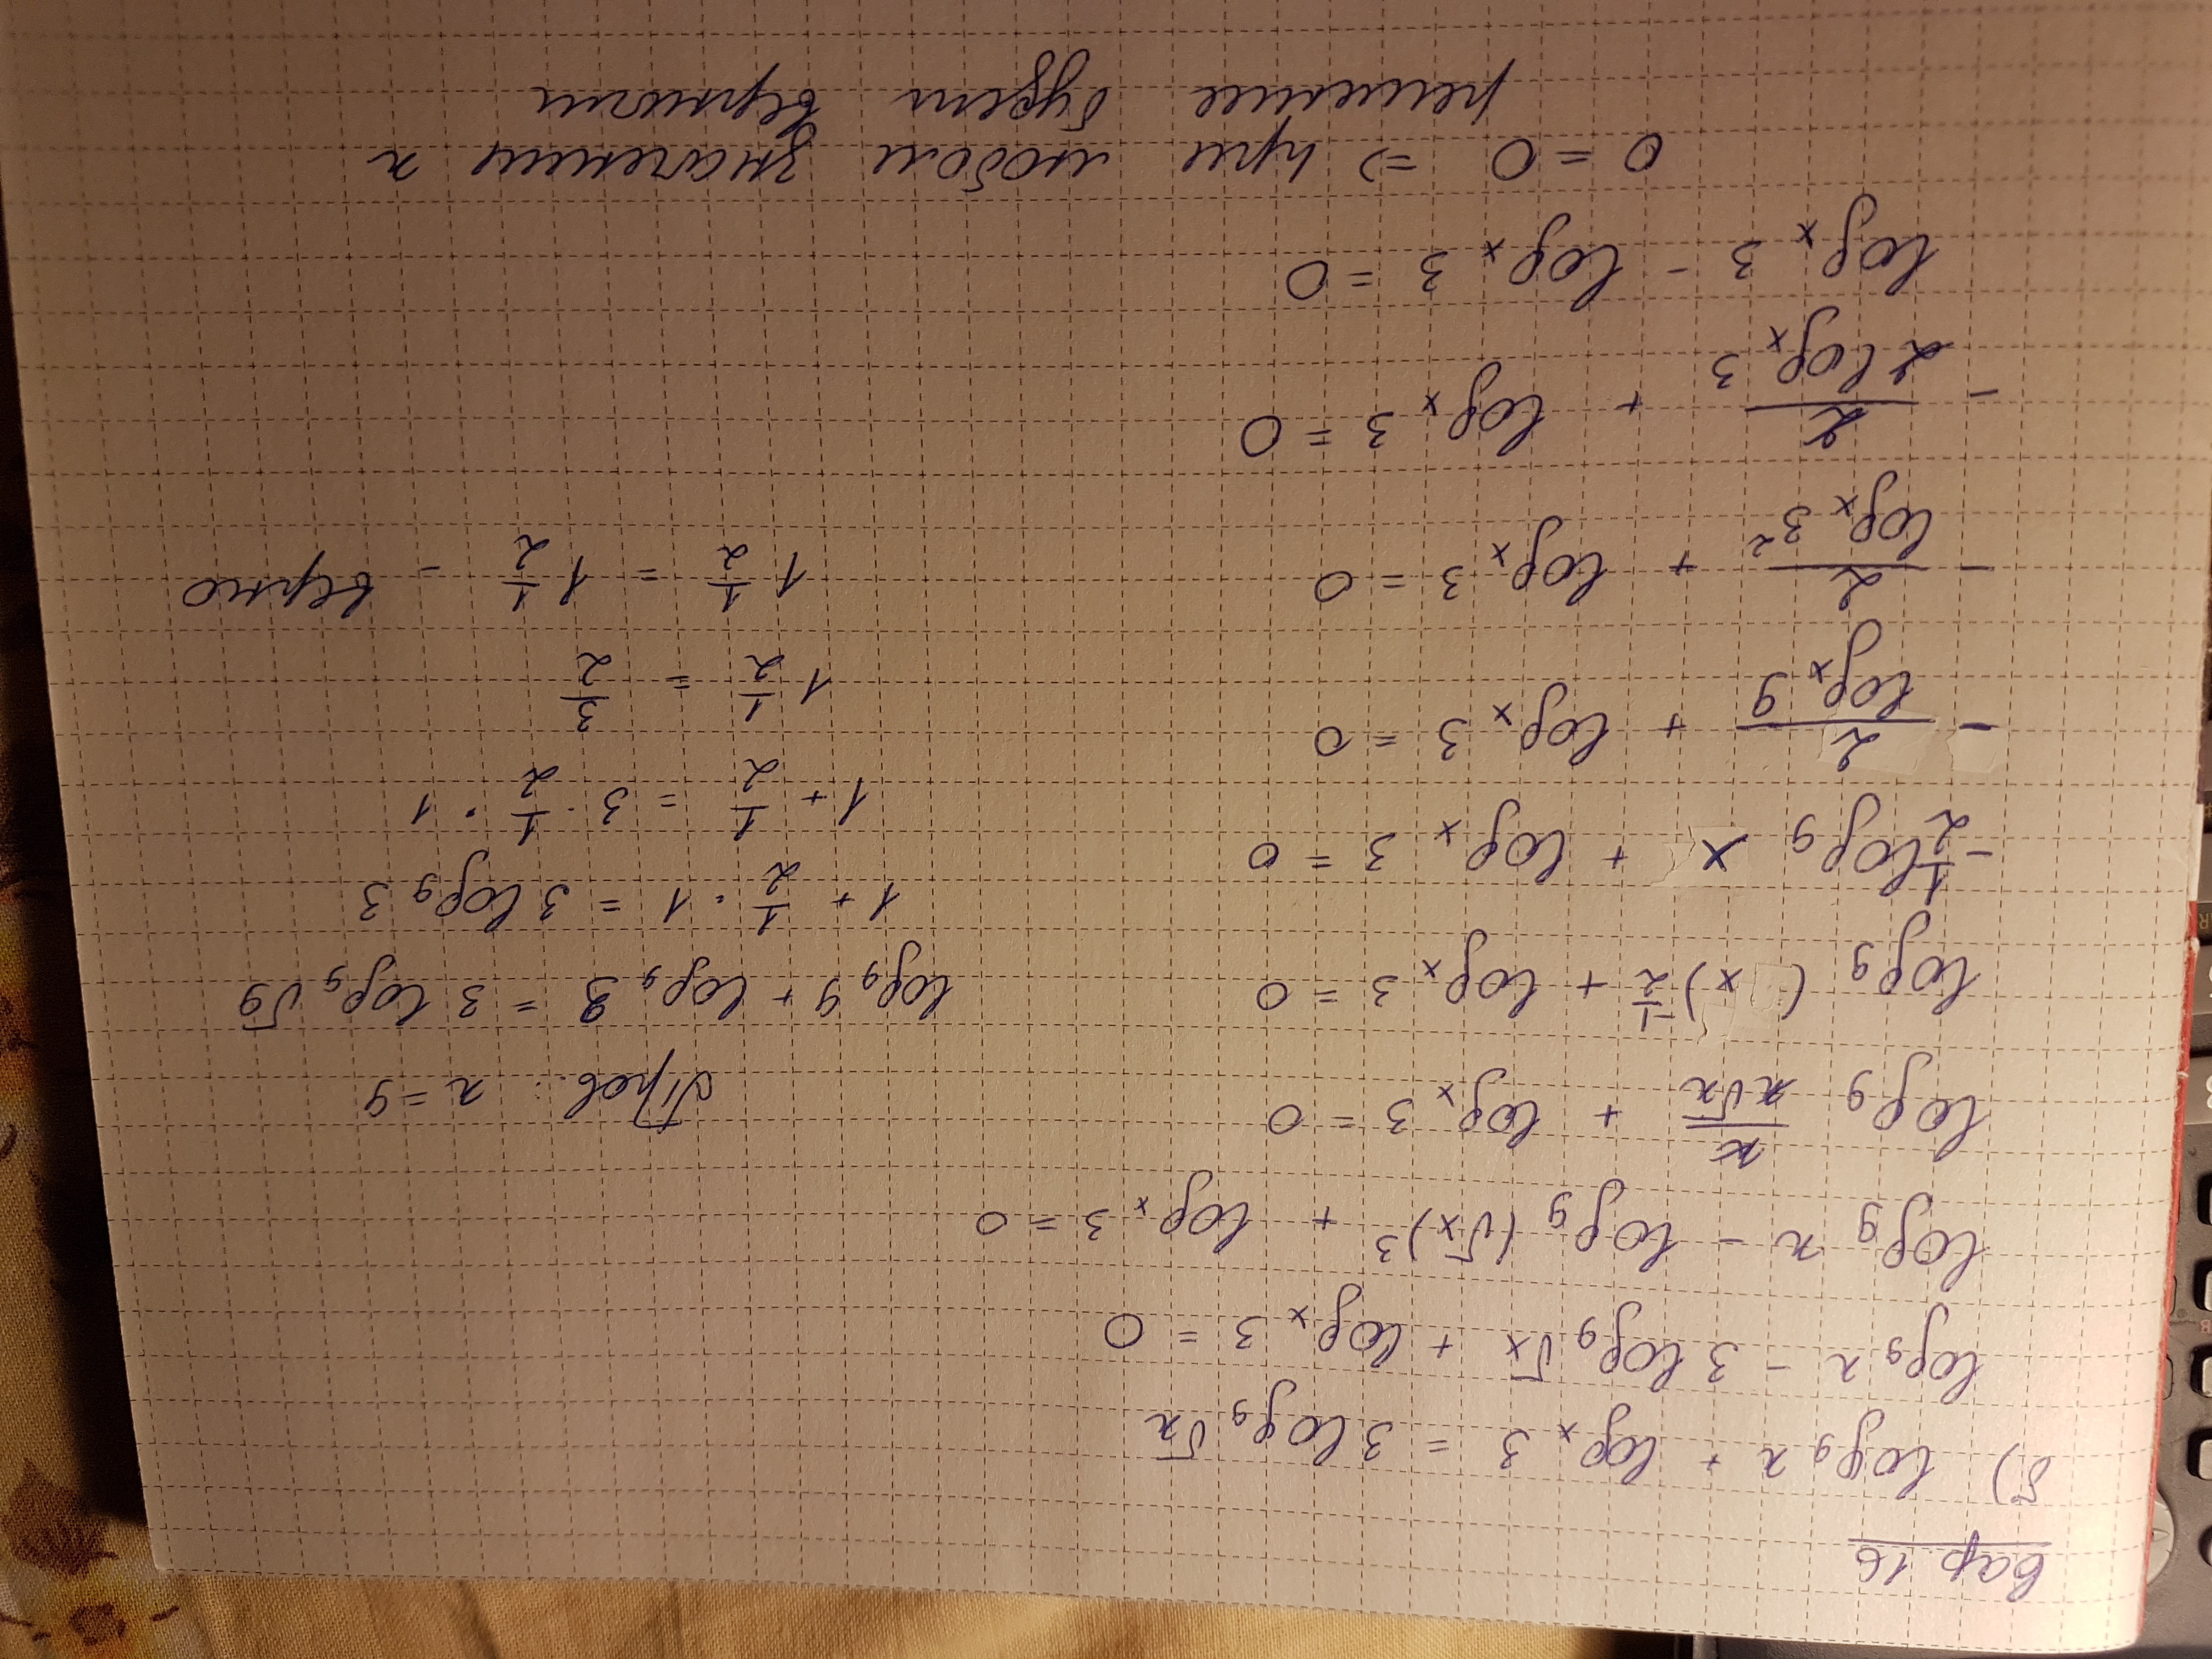 Вар 16
б) log₉ x + logₓ 3 = 3 log₉ √x
log₉ x − 3 log₉ √x + logₓ 3 = 0
log₉ x − log₉ (√x)³ + logₓ 3 = 0
log₉ x/(x√x) + logₓ 3 = 0
log₉ (x)^(-1/2) + logₓ 3 = 0
− 1/2 log₉ x + logₓ 3 = 0
− 2/(logₓ 9) + logₓ 3 = 0
− 2/(logₓ 3²) + logₓ 3 = 0
− 2/(2 logₓ 3) + logₓ 3 = 0
logₓ 3 − logₓ 3 = 0
0 = 0 => при любом значении x
решение будет верным
Пров.: x = 9
log₉ 9 + log₉ 3 = 3 log₉ √9
1 + 1/2 · 1 = 3 log₉ 3
1 + 1/2 = 3 · 1/2 · 1
1 1/2 = 3/2
1 1/2 = 1 1/2 - верно